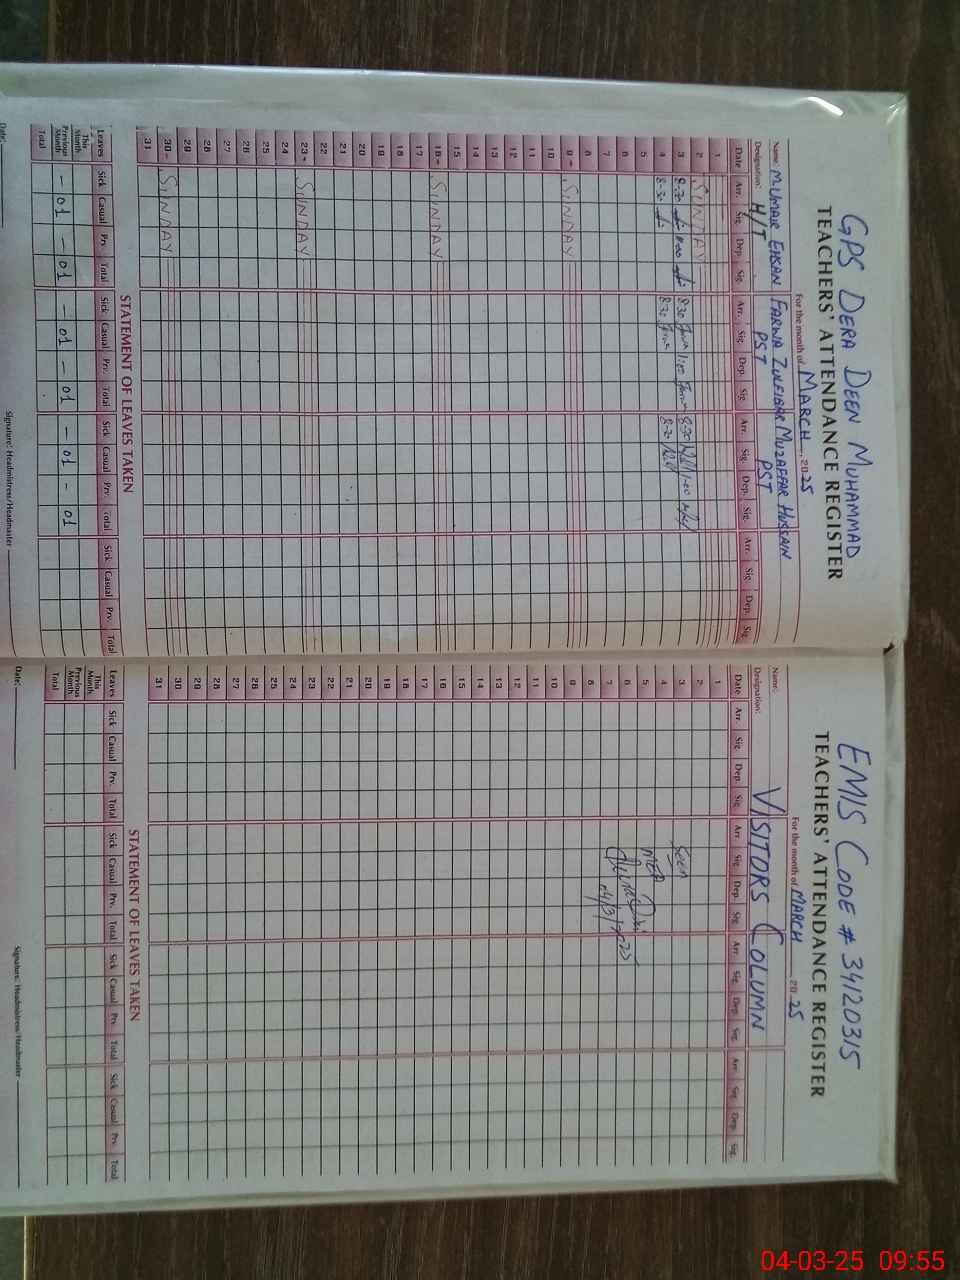 GPS DERA DEEN MUHAMMAD
TEACHERS' ATTENDANCE REGISTER
For the month of MARCH, 20 25
Name: M.UMAIR EHSAN FARWA ZULFIQAR MUZAFFAR HUSSAIN
Designation: H/T PST PST
Date Arr. Sig. Dep. Sig. Arr. Sig. Dep. Sig. Arr. Sig. Dep. Sig. Arr. Sig. Dep. Sig.
1
2 SUNDAY
3 8-30 1-00 8:30 1:00 8-30 1-00
4 8-30 8:30 8-30
5
6
7
8
9 SUNDAY
10
11
12
13
14
15
16 SUNDAY
17
18
19
20
21
22
23 SUNDAY
24
25
26
27
28
29
30 SUNDAY
31
STATEMENT OF LEAVES TAKEN
Leaves Sick Casual Prv. Total Sick Casual Prv. Total Sick Casual Prv. Total Sick Casual Prv. Total
This Month
Previous Month — 01 — 01 — 01 — 01 — 01 — 01
Total
Date:
Signature: Headmistress/Headmaster
EMIS CODE # 34120315
TEACHERS' ATTENDANCE REGISTER
For the month of MARCH 20 25
Name:
Designation: VISITORS COLUMN
Date Arr. Sig. Dep. Sig. Arr. Sig. Dep. Sig. Arr. Sig. Dep. Sig. Arr. Sig. Dep. Sig.
1
2
3 Seen
4
5 MEA
6
7
8 04/3/2025
9
10
11
12
13
14
15
16
17
18
19
20
21
22
23
24
25
26
27
28
29
30
31
STATEMENT OF LEAVES TAKEN
Leaves Sick Casual Prv. Total Sick Casual Prv. Total Sick Casual Prv. Total Sick Casual Prv. Total
This Month
Previous Month
Total
Date:
Signature: Headmistress/Headmaster
04-03-25 09:55